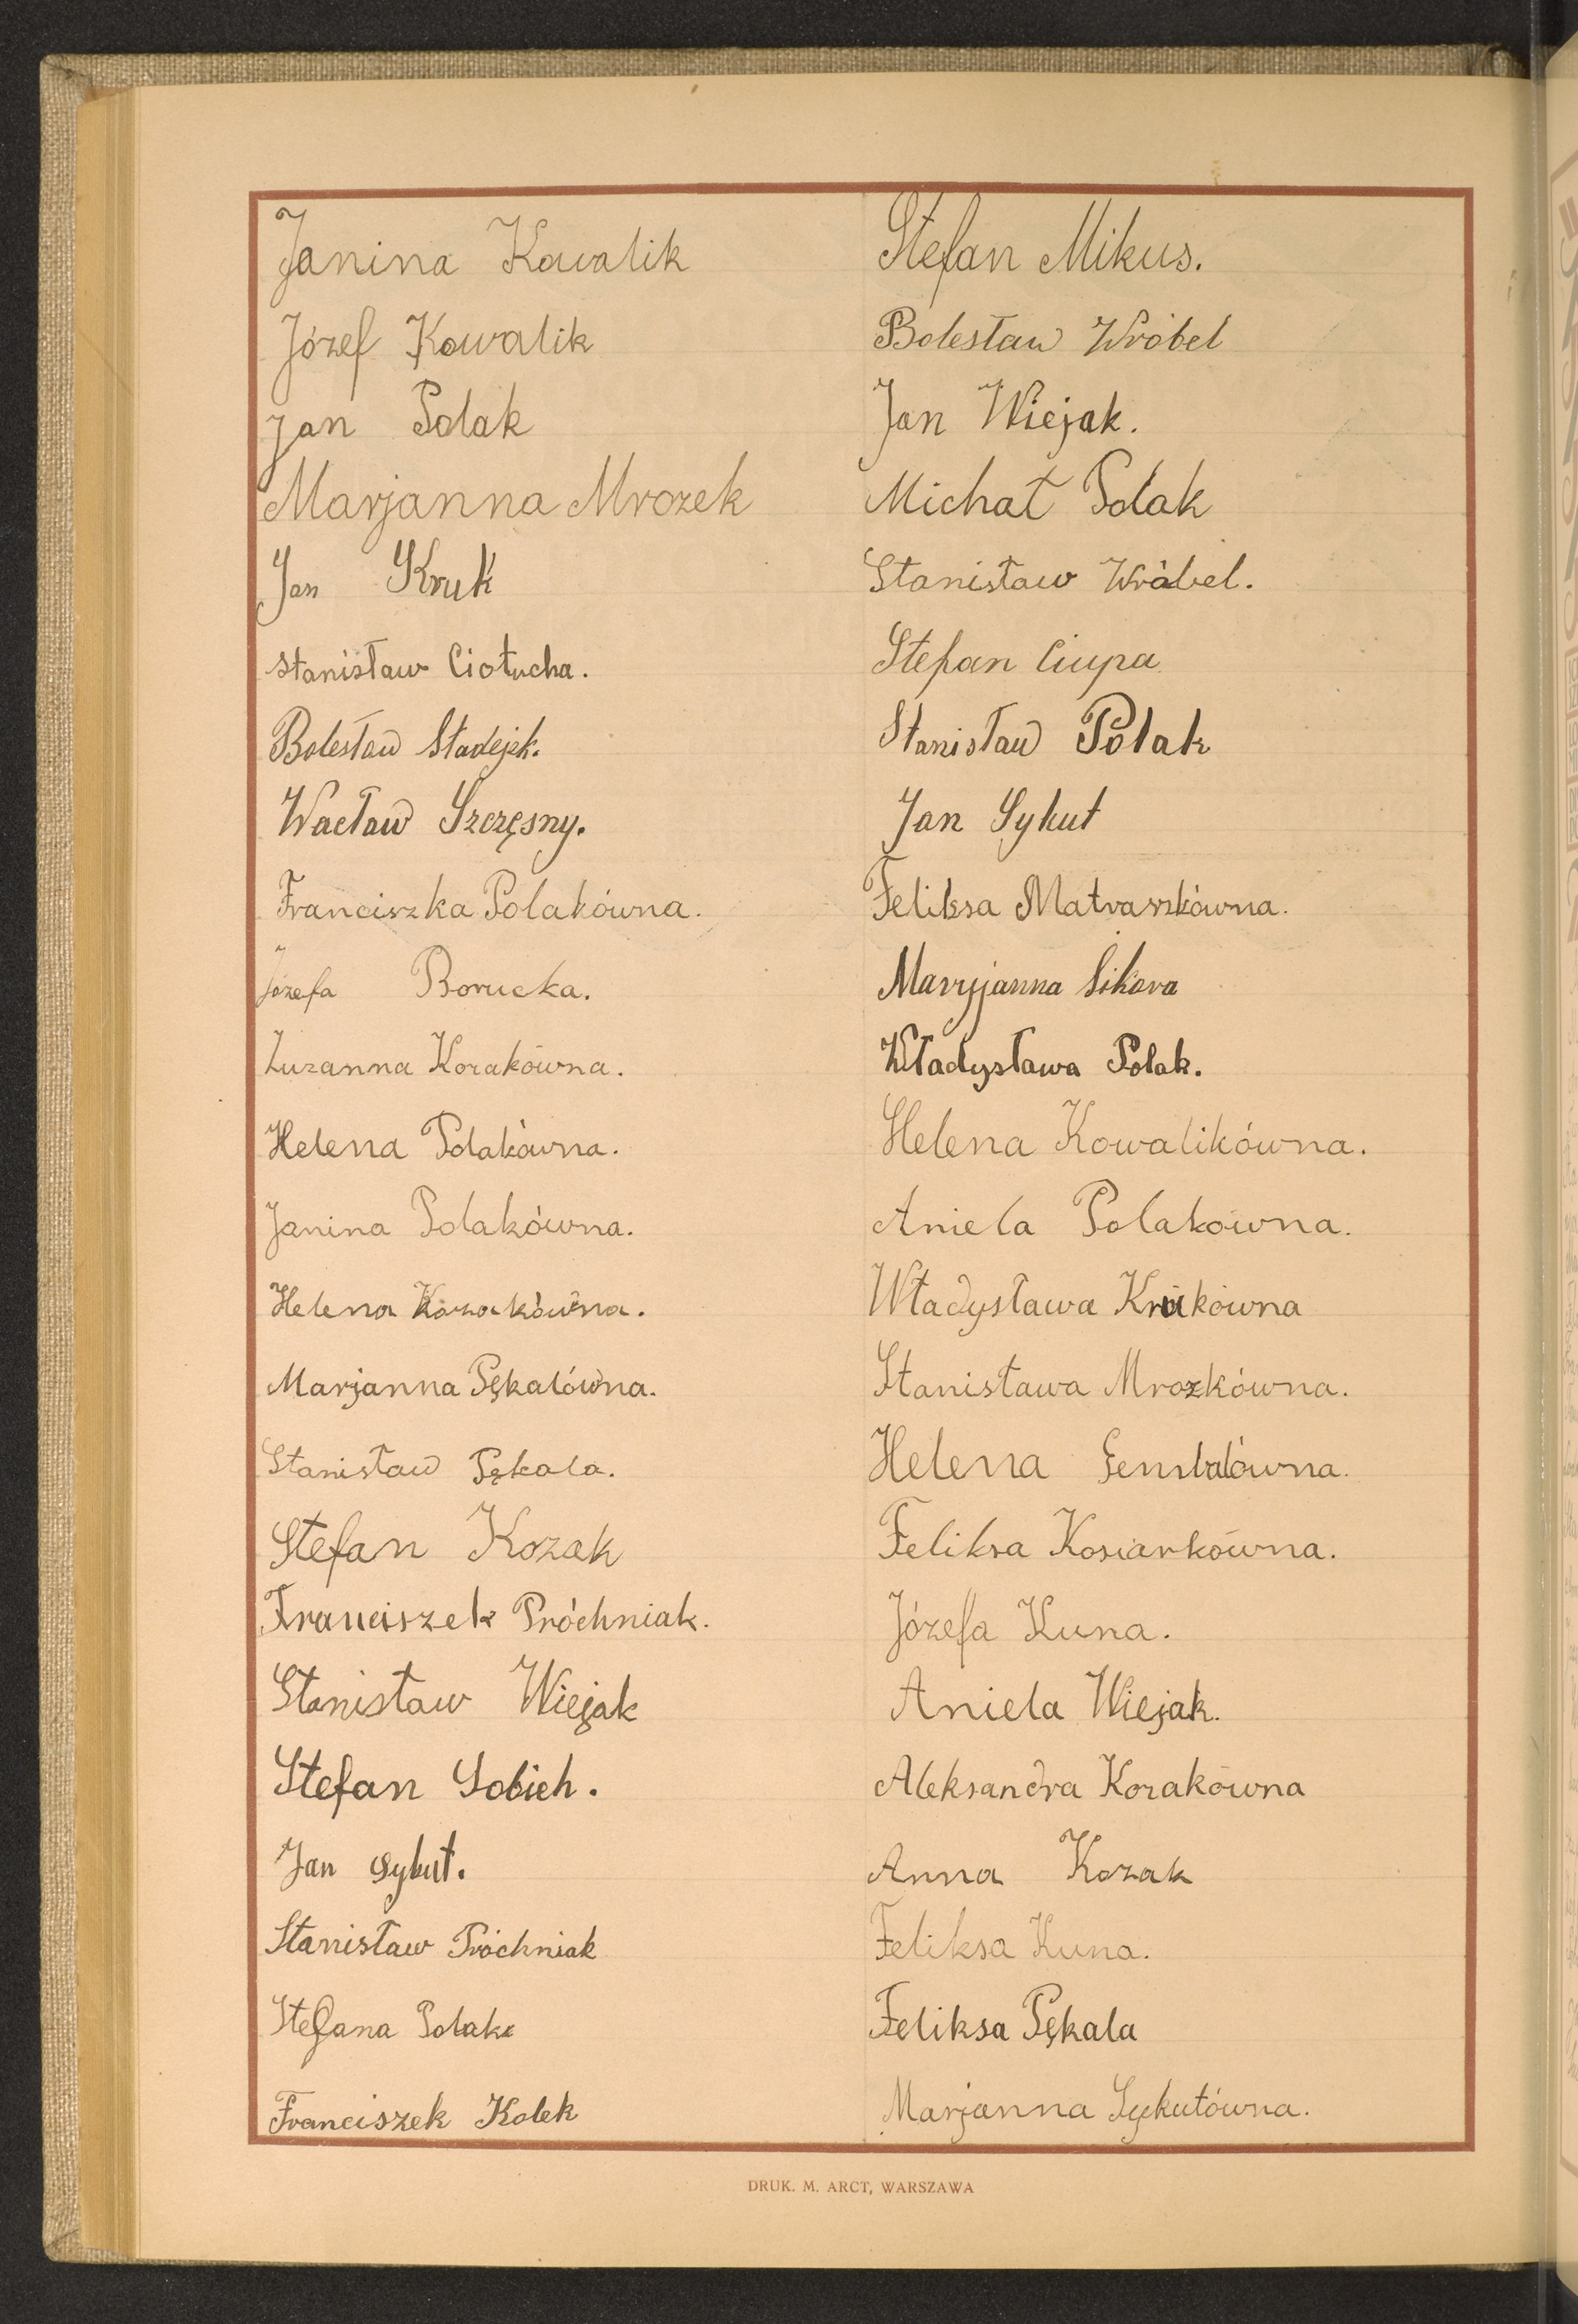 Janina Kowalik
Józef Kowalik
Jan Polak
Marjanna Mrozek
Jan Kruk
Stanisław Ciołucha.
Bolesław Stadejek.
Wacław Szczęsny.
Franciszka Polakówna.
Józefa Borucka.
Zuzanna Kozakówna.
Helena Polakówna.
Janina Polakówna.
Helena Kozakówna.
Marjanna Pękalówna.
Stanisław Pękala.
Stefan Kozak
Franciszek Próchniak.
Stanisław Wiejak
Stefan Sobich.
Jan Sykut.
Stanisław Próchniak
Stefana Polak
Franciszek Kołek
Stefan Mikus.
Bolesław Wróbel
Jan Wiejak.
Michał Polak
Stanisław Wróbel.
Stefan Ciupa
Stanisław Polak
Jan Sykut
Feliksa Matraszkówna.
Maryjanna Sikora
Władysława Polak.
Helena Kowalikówna.
Aniela Polakówna.
Władysława Krukówna
Stanisława Mrozkówna.
Helena Gembalówna.
Feliksa Kosiarkówna.
Józefa Kuna.
Aniela Wiejak.
Aleksandra Kozakówna
Anna Kozak
Feliksa Kuna.
Feliksa Pękala
Marjanna Sykutówna.
DRUK. M. ARCT, WARSZAWA